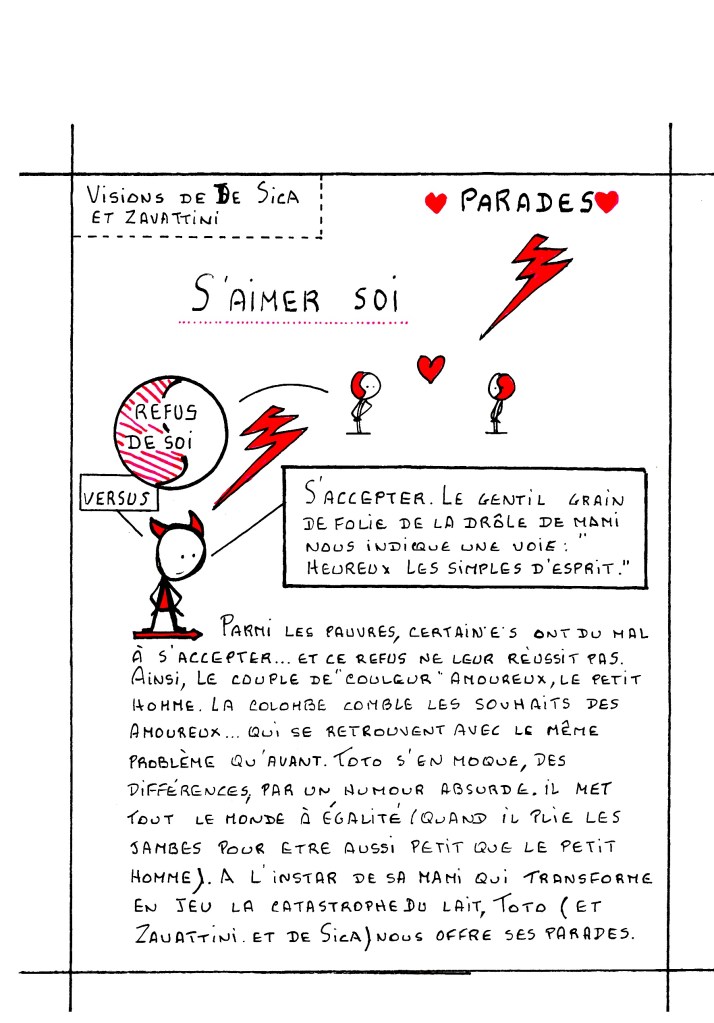 VISIONS DE DE SICA
ET ZAVATTINI
PARADES
S'AIMER SOI
REFUS
DE SOI
VERSUS
S'ACCEPTER. LE GENTIL GRAIN
DE FOLIE DE LA DRÔLE DE MAMI
NOUS INDIQUE UNE VOIE : "
HEUREUX LES SIMPLES D'ESPRIT."
PARMI LES PAUVRES, CERTAIN·E·S ONT DU MAL
À S'ACCEPTER... ET CE REFUS NE LEUR RÉUSSIT PAS.
AINSI, LE COUPLE DE "COULEUR" AMOUREUX, LE PETIT
HOMME. LA COLOMBE COMBLE LES SOUHAITS DES
AMOUREUX... QUI SE RETROUVENT AVEC LE MÊME
PROBLÈME QU'AVANT. TOTO S'EN MOQUE, DES
DIFFÉRENCES, PAR UN HUMOUR ABSURDE. IL MET
TOUT LE MONDE À ÉGALITÉ (QUAND IL PLIE LES
JAMBES POUR ETRE AUSSI PETIT QUE LE PETIT
HOMME). A L'INSTAR DE SA MAMI QUI TRANSFORME
EN JEU LA CATASTROPHE DU LAIT, TOTO (ET
ZAVATTINI. ET DE SICA) NOUS OFFRE SES PARADES.